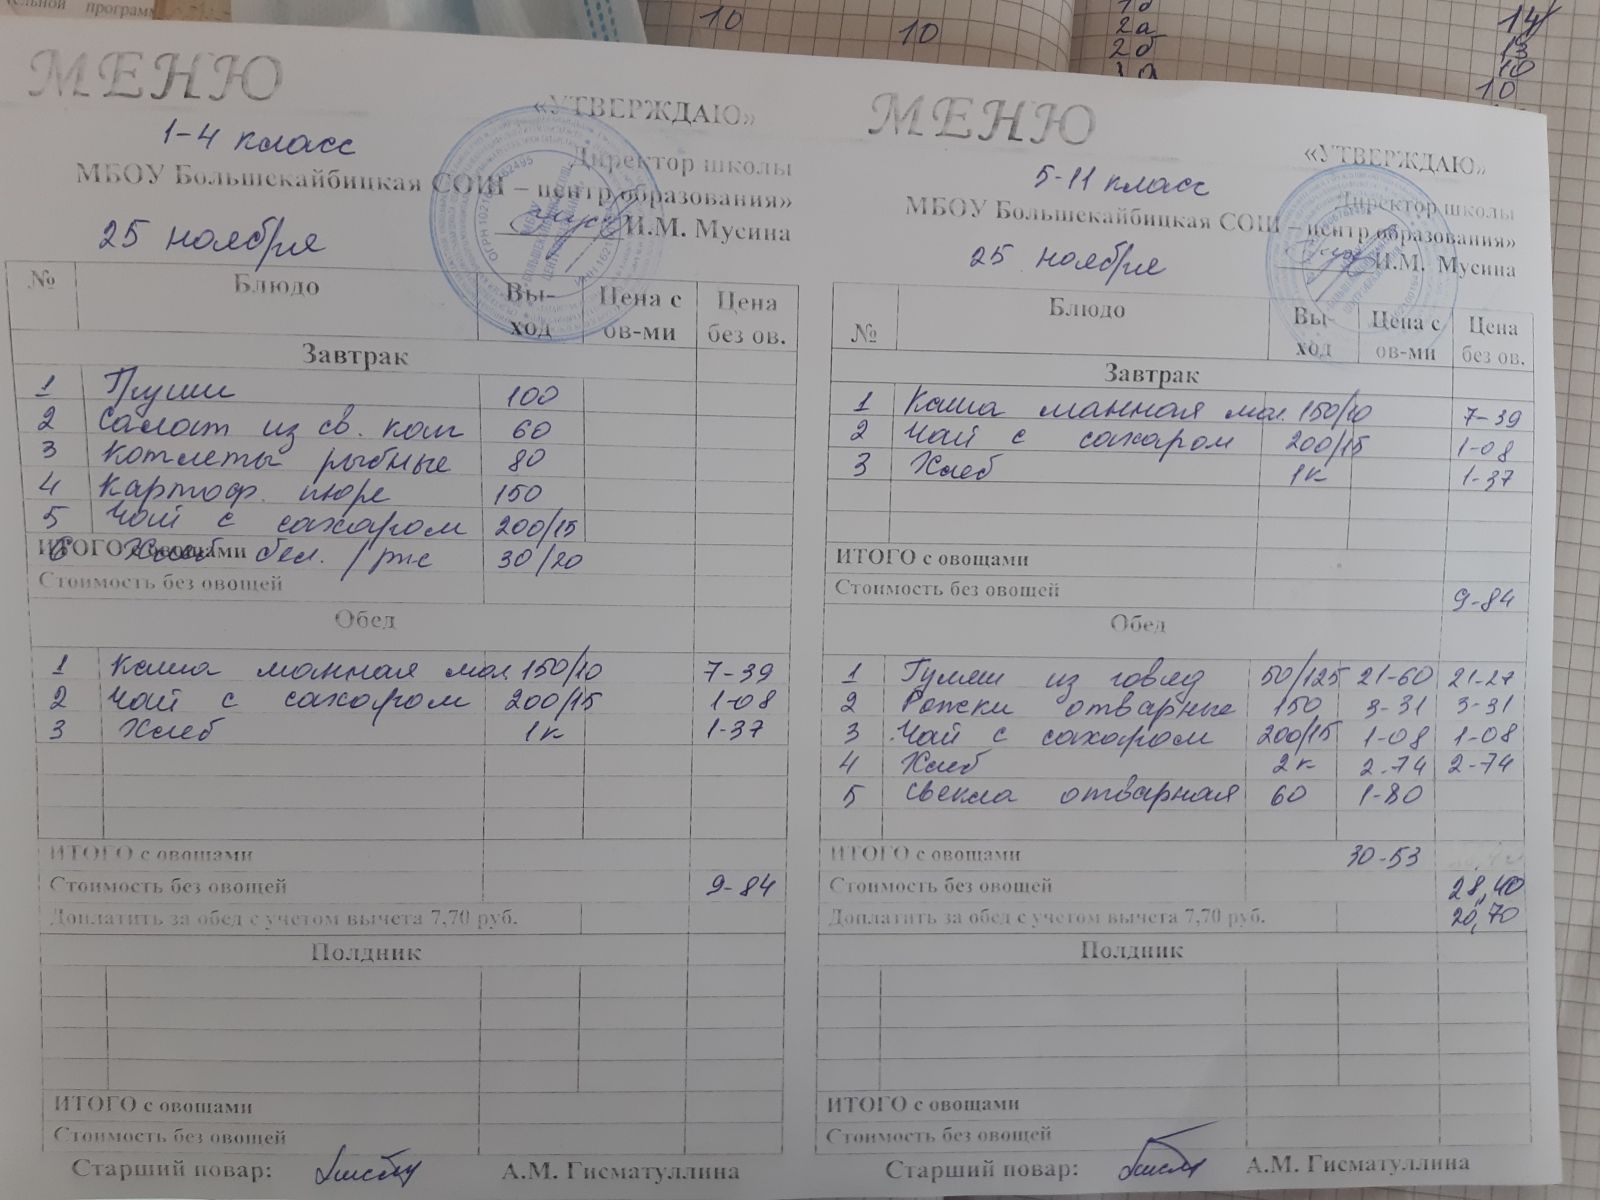 МЕНЮ
«УТВЕРЖДАЮ»
1-4 класс
Директор школы
МБОУ Большекайбицкая СОШ – центр образования»
25 ноября
И.М. Мусина
№ Блюдо Вы-ход Цена с ов-ми Цена без ов.
Завтрак
1 Груши 100
2 Салат из св. кап 60
3 Котлеты рыбные 80
4 Картоф. пюре 150
5 Чай с сахаром 200/15
6 Хлеб бел. / рж 30/20
ИТОГО с овощами
Стоимость без овощей
Обед
1 Каша манная мол 150/10 7-39
2 Чай с сахаром 200/15 1-08
3 Хлеб 1к 1-37
ИТОГО с овощами
Стоимость без овощей 9-84
Доплатить за обед с учетом вычета 7,70 руб.
Полдник
ИТОГО с овощами
Стоимость без овощей
Старший повар: А.М. Гисматуллина
МЕНЮ
«УТВЕРЖДАЮ»
5-11 класс
Директор школы
МБОУ Большекайбицкая СОШ – центр образования»
25 ноября
И.М. Мусина
№ Блюдо Вы-ход Цена с ов-ми Цена без ов.
Завтрак
1 Каша манная мол. 150/10 7-39
2 Чай с сахаром 200/15 1-08
3 Хлеб 1к 1-37
ИТОГО с овощами
Стоимость без овощей 9-84
Обед
1 Гуляш из говяд 50/125 21-60 21-27
2 Рожки отварные 150 3-31 3-31
3 Чай с сахаром 200/15 1-08 1-08
4 Хлеб 2к 2-74 2-74
5 Свекла отварная 60 1-80
ИТОГО с овощами 30-53
Стоимость без овощей 28,40
Доплатить за обед с учетом вычета 7,70 руб. 20,70
Полдник
ИТОГО с овощами
Стоимость без овощей
Старший повар: А.М. Гисматуллина
10 10
2а
2б
14
13
10
10